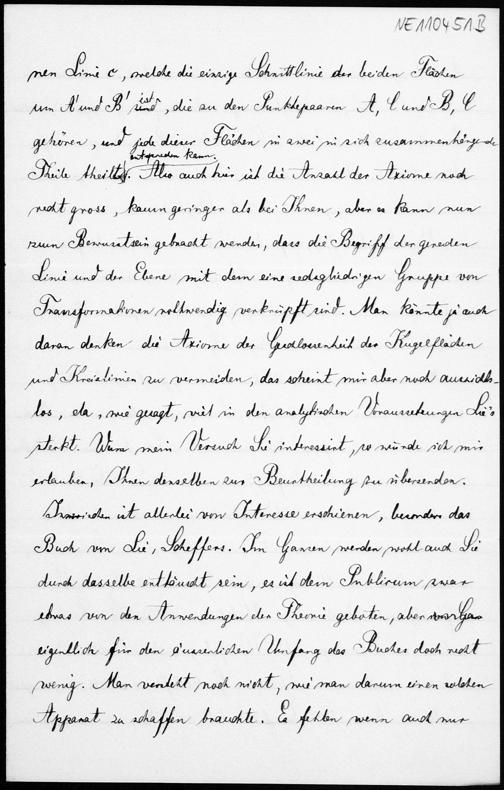 NE110451B
nen Linie c, welche die einzige Schnittlinie der beiden Flächen
um A' und B' ist, die zu den Punktepaaren A, C und B, C
gehören, und jede dieser Flächen in zwei in sich zusammenhängende
Theile theilt. Also auch hier ist die Anzahl der Axiome noch
recht gross, kaum geringer als bei Ihnen, aber es kann nun
zum Bewusstsein gebracht werden, dass die Begriff der geraden
Linie und der Ebene mit dem eine sechsgliedrigen Gruppe von
Transformationen nothwendig verknüpft sind. Man könnte ja auch
daran denken die Axiome der Geschlossenheit der Kugelflächen
und Kreislinien zu vermeiden, das scheint mir aber noch aussichts-
los, da, wie gesagt, viel in den analytischen Voraussetzungen Lie's
steckt. Wenn mein Versuch Sie interessirt, so würde ich mir
erlauben, Ihnen denselben zur Beurtheilung zu übersenden.
Inzwischen ist allerlei von Interesse erschienen, besonders das
Buch von Lie, Scheffers. Im Ganzen werden wohl auch Sie
durch dasselbe enttäuscht sein, es ist dem Publicum zwar
etwas von den Anwendungen der Theorie geboten, aber
eigentlich für den äusserlichen Umfang des Buches doch recht
wenig. Man versteht noch nicht, wie man darum einen solchen
Apparat zu schaffen brauchte. Es fehlen wenn auch nur